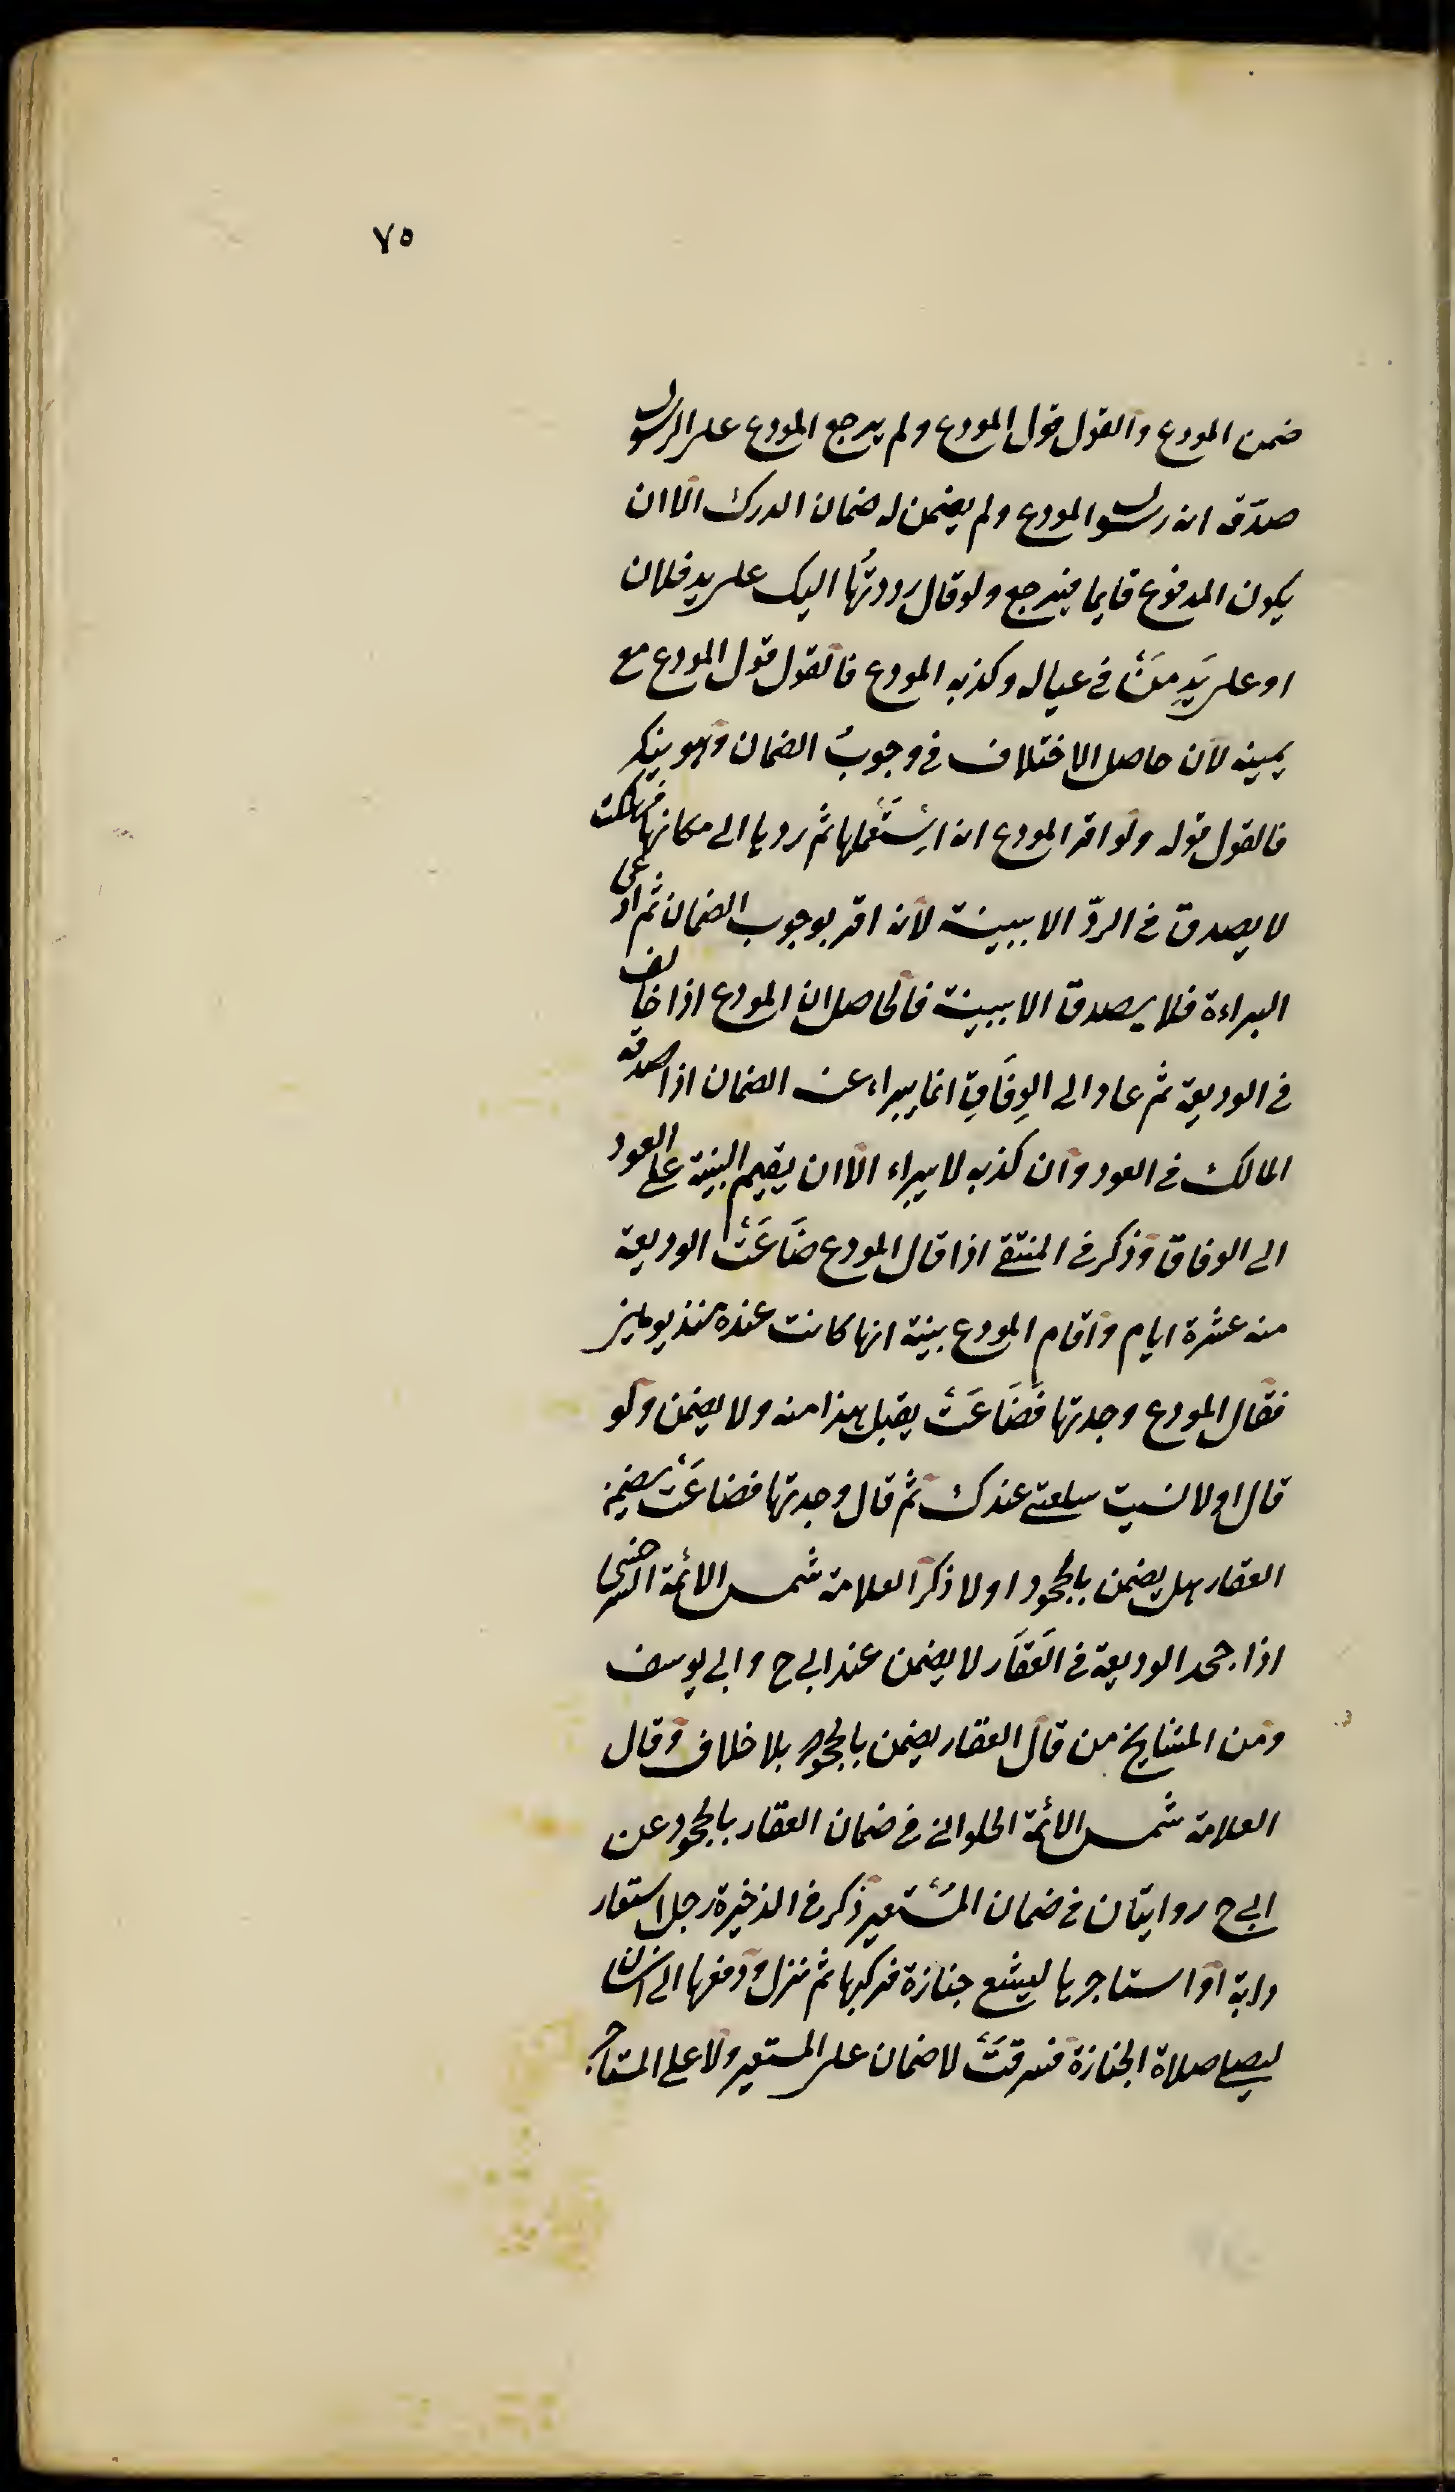 ٧٥
ضمن المودع والقول قول المودع ولم يرجع المودع على الرسول
صدّقه انه رسول المودع ولم يضمن له ضمان الدرك الّا ان
يكون المدفوع قايما فيرجع ولو قال رددتُها اليك على يد فلان
او على يَدِ مَنْ في عياله وكذبه المودع فالقول قول المودع مع
يمينه لان حاصل الاختلاف في وجوبُ الضمان وهو ينكر
فالقول قوله ولو اقر المودع انه استَعْملها ثم ردها الى مكانها فهلكت
لا يصدق في الردّ الا ببينة لانه اقر بوجوب الضمان ثم ادّعى
البراءة فلا يصدق الا ببينة فالحاصل ان المودع اذا خالف
في الوديعة ثم عاد الى الوِفَاقِ انما يبراء عن الضمان اذا صدقه
المالك في العود وان كذبه لا يبراء الّا ان يقيم البينة على العود
الى الوفاق وذكر في المنتقى اذا قال المودع ضَاعَتْ الوديعة
منه عشرة ايام واقام المودع بينة انها كانت عنده منذ يومين
فقال المودع وجدتها فَضَاعَتْ يقبل هذا منه ولا يضمن ولو
قال اولا نسيت سلعتى عندك ثم قال وجدتها فضاعَتْ يضمن
العقار هل يضمن بالجحود اولا ذكر العلامة شمس الائمة السرخسى
اذا جحد الوديعة في العَقَار لا يضمن عند ابى ح وابى يوسف
ومن المشايخ من قال العقار يضمن بالجحود بلا خلاف وقال
العلامة شمس الائمة الحلوانى في ضمان العقار بالجحود عن
ابى ح روايتان في ضمان المُسْتعير ذكر في الذخيرة رجل استعار
دابة او استاجرها ليشع جنازة فركبها ثم نزل ودفعها الى انسان
ليصلى صلاة الجنازة فسرقَتْ لا ضمان على المستعير ولا على المستاجر